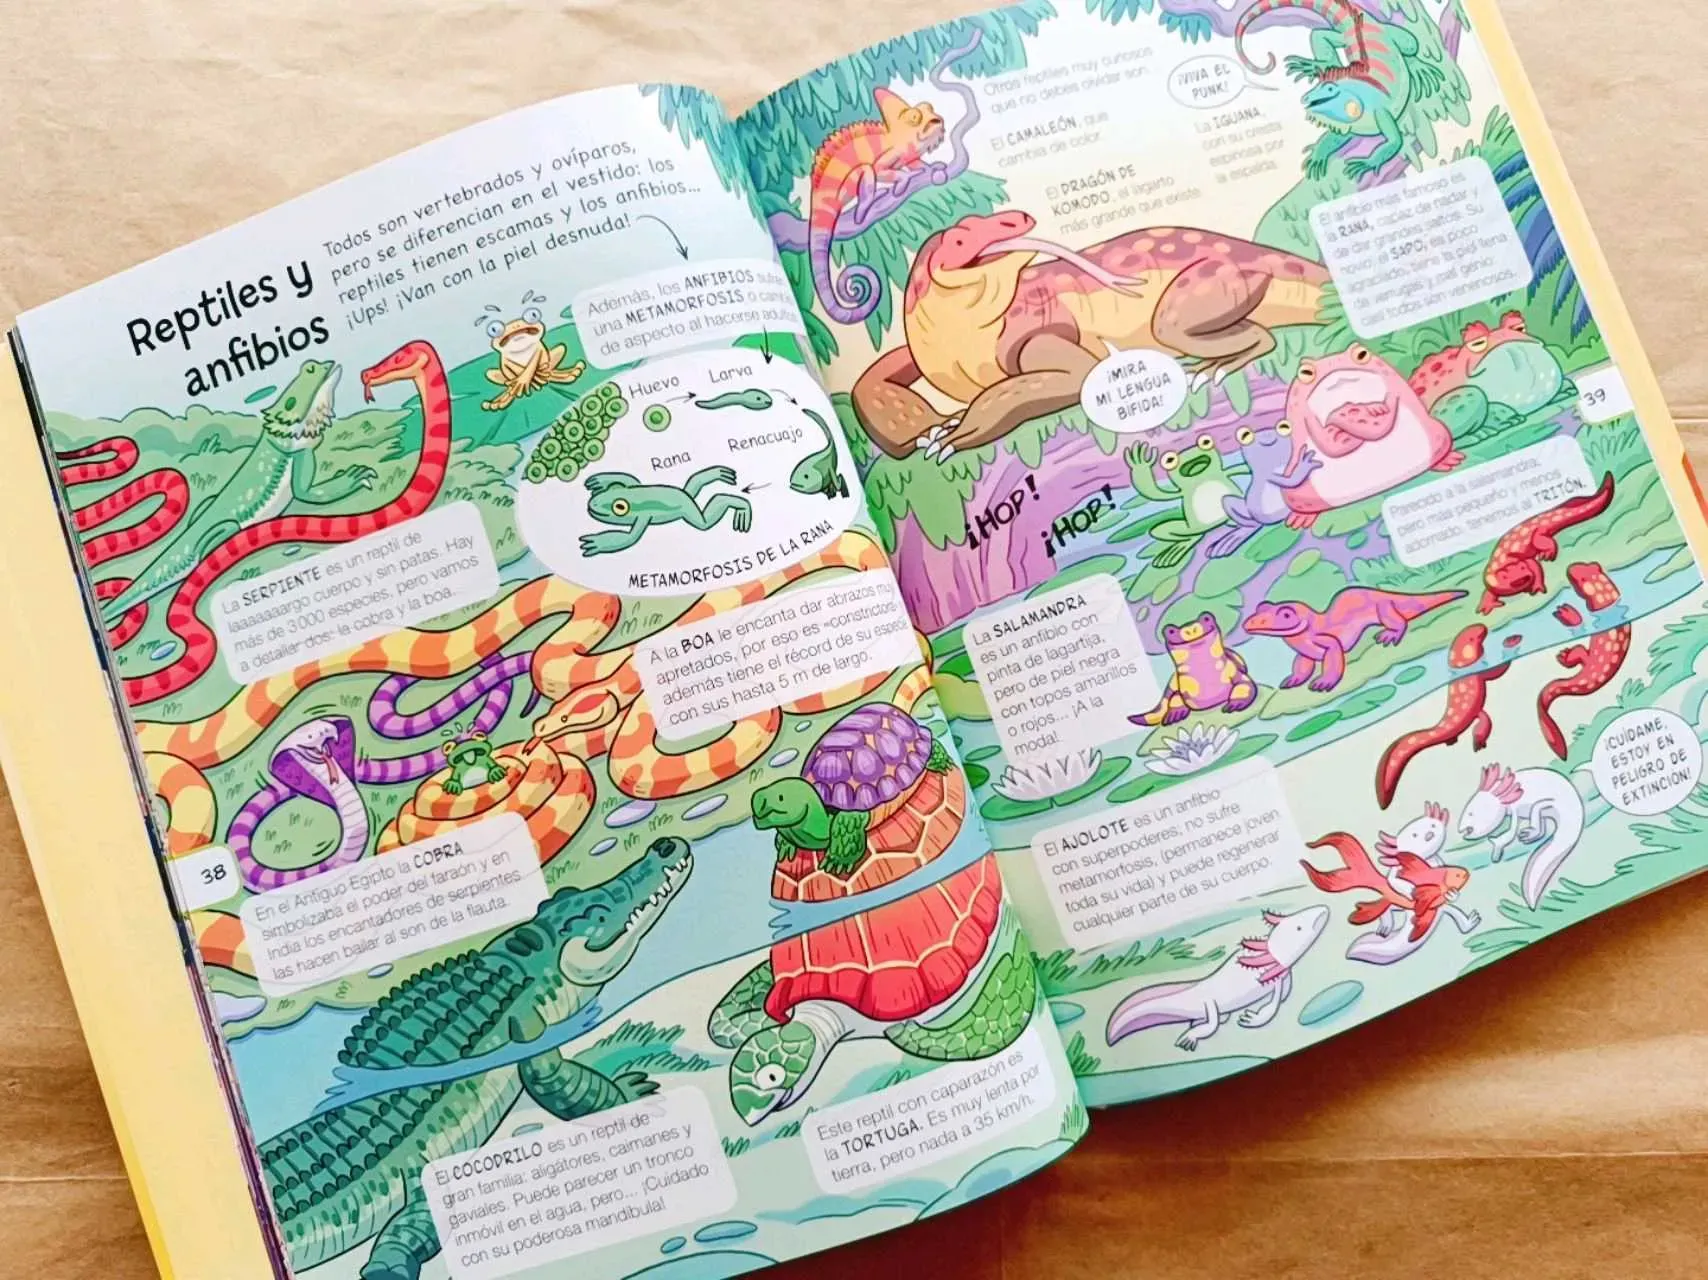 Reptiles y
anfibios
Todos son vertebrados y ovíparos,
pero se diferencian en el vestido: los
reptiles tienen escamas y los anfibios...
¡Ups! ¡Van con la piel desnuda!
Además, los ANFIBIOS sufren
una METAMORFOSIS o cambio
de aspecto al hacerse adultos
Huevo
Larva
Renacuajo
Rana
METAMORFOSIS DE LA RANA
La SERPIENTE es un reptil de
laaaaaargo cuerpo y sin patas. Hay
más de 3 000 especies, pero vamos
a detallar dos: la cobra y la boa.
A la BOA le encanta dar abrazos muy
apretados, por eso es «constrictora»
además tiene el récord de su especie
con sus hasta 5 m de largo.
38
En el Antiguo Egipto la COBRA
simbolizaba el poder del faraón y en
India los encantadores de serpientes
las hacen bailar al son de la flauta.
El COCODRILO es un reptil de
gran familia: aligátores, caimanes y
gaviales. Puede parecer un tronco
inmóvil en el agua, pero... ¡Cuidado
con su poderosa mandíbula!
Este reptil con caparazón es
la TORTUGA. Es muy lenta por
tierra, pero nada a 35 km/h.
Otros reptiles muy curiosos
que no debes olvidar son:
El CAMALEÓN, que
cambia de color.
El DRAGÓN DE
KOMODO, el lagarto
más grande que existe.
¡VIVA EL
PUNK!
La IGUANA,
con su cresta
espinosa por
la espalda.
¡MIRA
MI LENGUA
BÍFIDA!
El anfibio más famoso es
la RANA, capaz de nadar y
de dar grandes saltos. Su
novio, el SAPO, es poco
agraciado, tiene la piel llena
de verrugas y mal genio:
casi todos son venenosos.
39
¡HOP!
¡HOP!
Parecido a la salamandra,
pero más pequeño y menos
adornado, tenemos al TRITÓN.
La SALAMANDRA
es un anfibio con
pinta de lagartija,
pero de piel negra
con topos amarillos
o rojos... ¡A la
moda!
El AJOLOTE es un anfibio
con superpoderes: no sufre
metamorfosis, (permanece joven
toda su vida) y puede regenerar
cualquier parte de su cuerpo.
¡CUÍDAME,
ESTOY EN
PELIGRO DE
EXTINCIÓN!